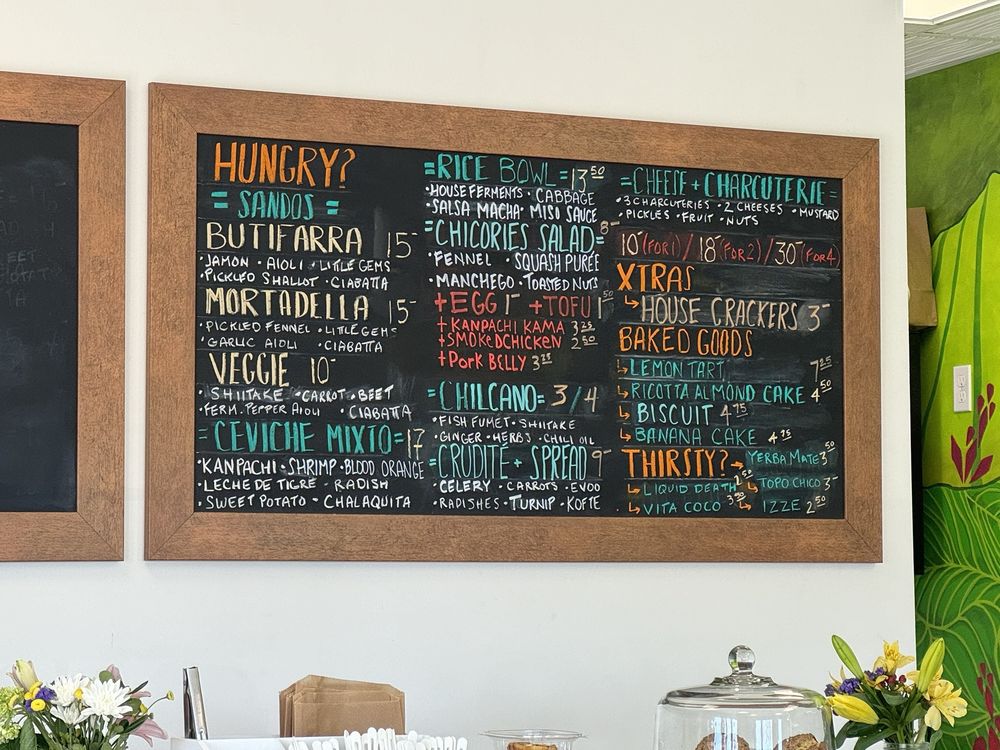 HUNGRY?
= SANDOS =
BUTIFARRA 15-
·JAMON ·AIOLI ·LITTLE GEMS
·PICKLED SHALLOT ·CIABATTA
MORTADELLA 15-
·PICKLED FENNEL ·LITTLE GEMS
·GARLIC AIOLI ·CIABATTA
VEGGIE 10-
·SHIITAKE ·CARROT ·BEET
·FERM. PEPPER AIOLI ·CIABATTA
=CEVICHE MIXTO= 17
·KANPACHI ·SHRIMP ·BLOOD ORANGE
·LECHE DE TIGRE ·RADISH
·SWEET POTATO ·CHALAQUITA
=RICE BOWL= 13 50
·HOUSE FERMENTS ·CABBAGE
·SALSA MACHA ·MISO SAUCE
=CHICORIES SALAD= 8-
·FENNEL ·SQUASH PURÉE
·MANCHEGO ·TOASTED NUTS
+EGG 1- +TOFU 1 50
+KANPACHI KAMA 3 25
+SMOKED CHICKEN 2 50
+PORK BELLY 3 25
=CHILCANO= 3/4
·FISH FUMET ·SHIITAKE
·GINGER ·HERBS ·CHILI OIL
=CRUDITÉ + SPREAD 9-
·CELERY ·CARROTS ·EVOO
·RADISHES ·TURNIP ·KOFTE
=CHEESE + CHARCUTERIE=
·3 CHARCUTERIES ·2 CHEESES ·MUSTARD
·PICKLES ·FRUIT ·NUTS
10-(FOR 1) / 18-(FOR 2) / 30-(FOR 4)
XTRAS
↳HOUSE CRACKERS 3-
BAKED GOODS
↳LEMON TART 7 25
↳RICOTTA ALMOND CAKE 4 50
↳BISCUIT 4 75
↳BANANA CAKE 4 75
THIRSTY? → YERBA MATE 3 50
↳LIQUID DEATH 2 50 ↳TOPO CHICO 3-
↳VITA COCO 3 50 ↳IZZE 2 50